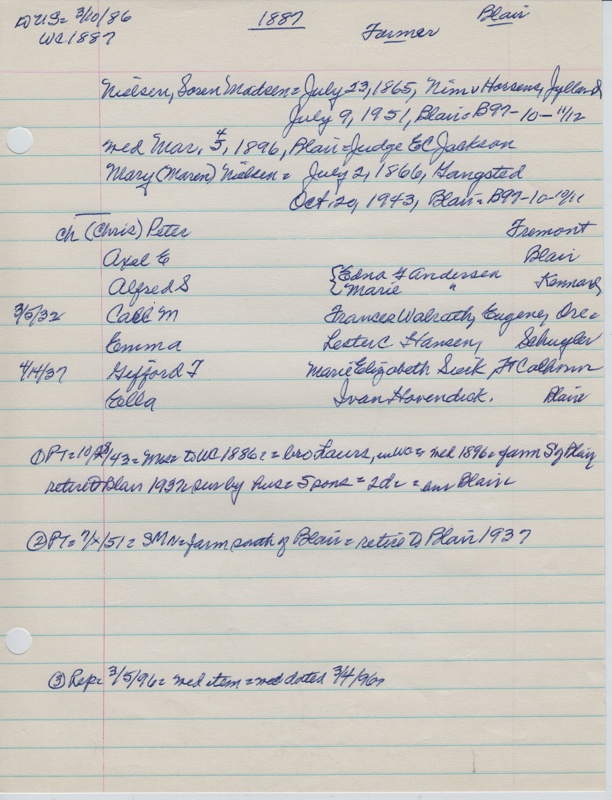 D US= 3/10/86 1887 Farmer Blair
WC 1887
Nielsen, Soren Madsen= July 23, 1865, Nim v Horsens, Jylland
July 9, 1951, Blair= B97-10-11/12
med Mar. 5, 1896, Blair=Judge EC Jackson
4
Mary (Maren) Nielsen= July 2, 1866, Gangsted
Oct. 20, 1943, Blair= B97-10-10/11
ch (Chris) Peter Fremont
Axel E Blair
Alfred S {Edna F Andersen Kennard
{Marie "
3/5/32 Carl M Frances Walrath, Eugene, Ore=
Emma Lester C Hansen, Schuyler
4/14/37 Gifford F Marie Elizabeth Sierk Ft Calhoun
Ella Ivan Hovendick. Blair
① PT= 10/28/43= Mrs= to WC 1886= bro Laurs, in WC= med 1896= farm S of Blair
retire to Blair 1937= sur by hus= 5 sons= 2d= Blair
② PT= 7/ /51= SMN= farm south of Blair= retire to Blair 1937
③ Rep= 3/5/96= med item= med dated 3/4/96=